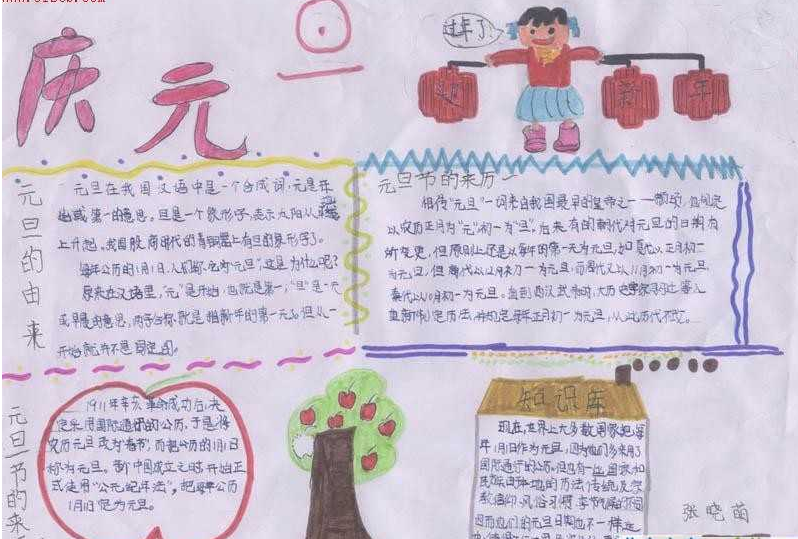 庆元旦
过年了
迎新年
元旦的由来
元旦在我国汉语中是一个合成词,元是
或第一的意思。旦是一个象形字,表示太阳从
上升起。我国殷商时代的青铜器上有旦的象形字了。
每年公历的1月1日,人们都称为"元旦",这是为什么呢?
原来在汉语里,"元"是开始,也就是第一,"旦"是一天
或早晨的意思,两字合称就是指新年的第一天。但从一
开始就并不是固定的。
元旦节的来历
相传"元旦"一词来自我国最早的皇帝之一——颛顼,
以农历正月为"元",初一为"旦"。后来有的朝代对元旦的日期有
所变更,但原则上还是以每年的第一天为元旦,如夏代以正月初一
为元旦,但商代以12月初一为元旦,而周代又以11月初一为元旦,
秦代以10月初一为元旦。直到西汉武帝时,
重新制定历法,并规定每年正月初一为元旦,从此历代不
元旦节的来
1911年辛亥革命成功后,决
定采用国际通用的公历,于是将
农历元旦改为春节,而把公历的1月1日
称为元旦。新中国成立之时,开始正
式使用"公元纪年法",把每年公历
1月1日定为元旦。
知识库
现在,世界上大多数国家把每
年1月1日作为元旦,因为他们多采用了
国际通行的公历。但也有一些国家和
民族由于本地的历法传统及宗
教信仰、风俗习惯、季节气候的不同
因而他们的元旦日期也不一样
张晓茵